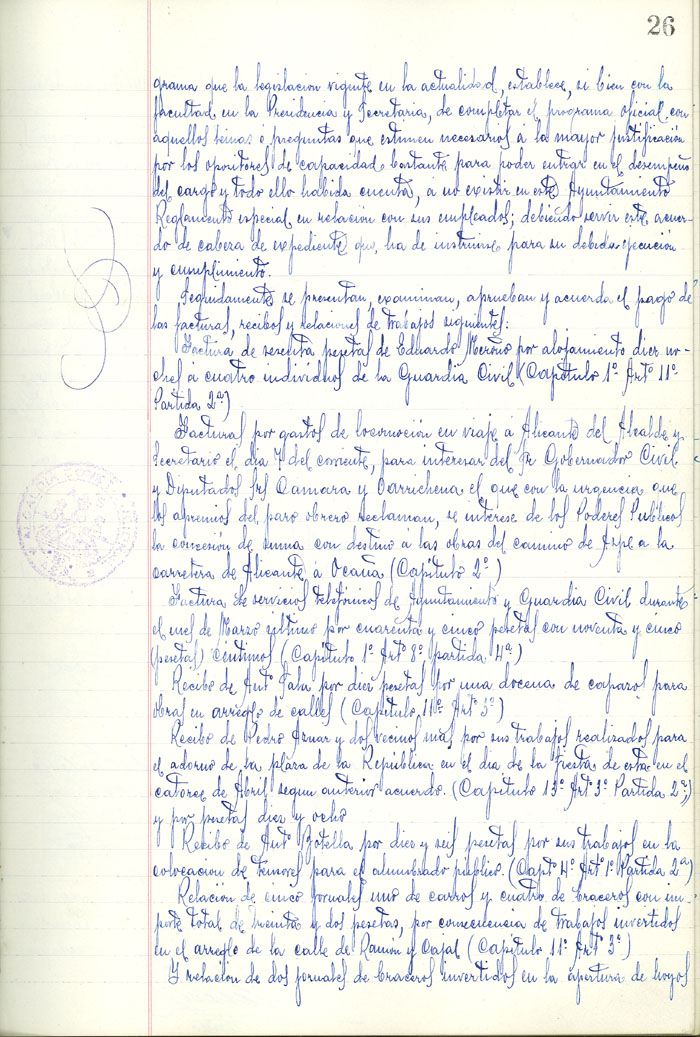 26
grama que la legislacion vigente en la actualidad, establece, si bien con la
facultad en la Presidencia y Secretaria, de completar el programa oficial con
aquellos temas o preguntas que estimen necesarios á la mayor justificación
por los opositores de capacidad bastante para poder entrar en el desempeño
del cargo y todo ello habida cuenta, a no existir en este Ayuntamiento
Reglamento especial en relación con sus empleados; debiendo servir este acuer-
do de cabeza de expediente que, ha de instruirse para su debida ejecución
y cumplimiento.
Seguidamente se presentan, examinan, aprueban y acuerda el pago de
las facturas, recibos y relaciones de trabajos siguientes:
Factura de sesenta pesetas de Eduardo por alojamiento diez no-
ches á cuatro individuos de la Guardia Civil (Capitulo 1º Artº 11º
Partida 2ª)
Facturas por gastos de locomoción en viaje á Alicante del Alcalde y
Secretario el dia 7 del corriente, para interesar del Sr Gobernador Civil
y Diputados Srs Camara y Carrichena el que con la urgencia que
los apremios del paro obrero reclaman, se interese de los Poderes Publicos
la concesión de suma con destino á las obras del camino de Aspe a la
carretera de Alicante á Ocaña (Capitulo 2º)
Factura de servicios telefónicos de Ayuntamiento y Guardia Civil durante
el mes de Marzo ultimo por cuarenta y cinco pesetas con noventa y cinco
(pesetas) centimos (Capitulo 1º Artº 8º partida 4ª)
Recibo de Antº por diez pesetas por una docena de capazos para
obras en arreglo de calles (Capitulo 11º Artº 3º)
Recibo de Pedro Aznar y dos vecinos mas por sus trabajos realizados para
el adorno de la plaza de la República en el dia de la Fiesta de esta en el
catorce de Abril segun anterior acuerdo. (Capitulo 13º Artº 3º Partida 2ª)
y por pesetas diez y ocho
Recibo de Antº Botella por diez y seis pesetas por sus trabajos en la
colocacion de tensores para el alumbrado publico. (Captº 4º Artº 1º Partida 2ª)
Relación de cinco jornales uno de carros y cuatro de braceros con im-
porte total de treinta y dos pesetas, por consecuencia de trabajos invertidos
en el arreglo de la calle de Ramón y Cajal (Capitulo 11º Artº 3º)
Y relación de dos jornales de braceros invertidos en la apertura de hoyos